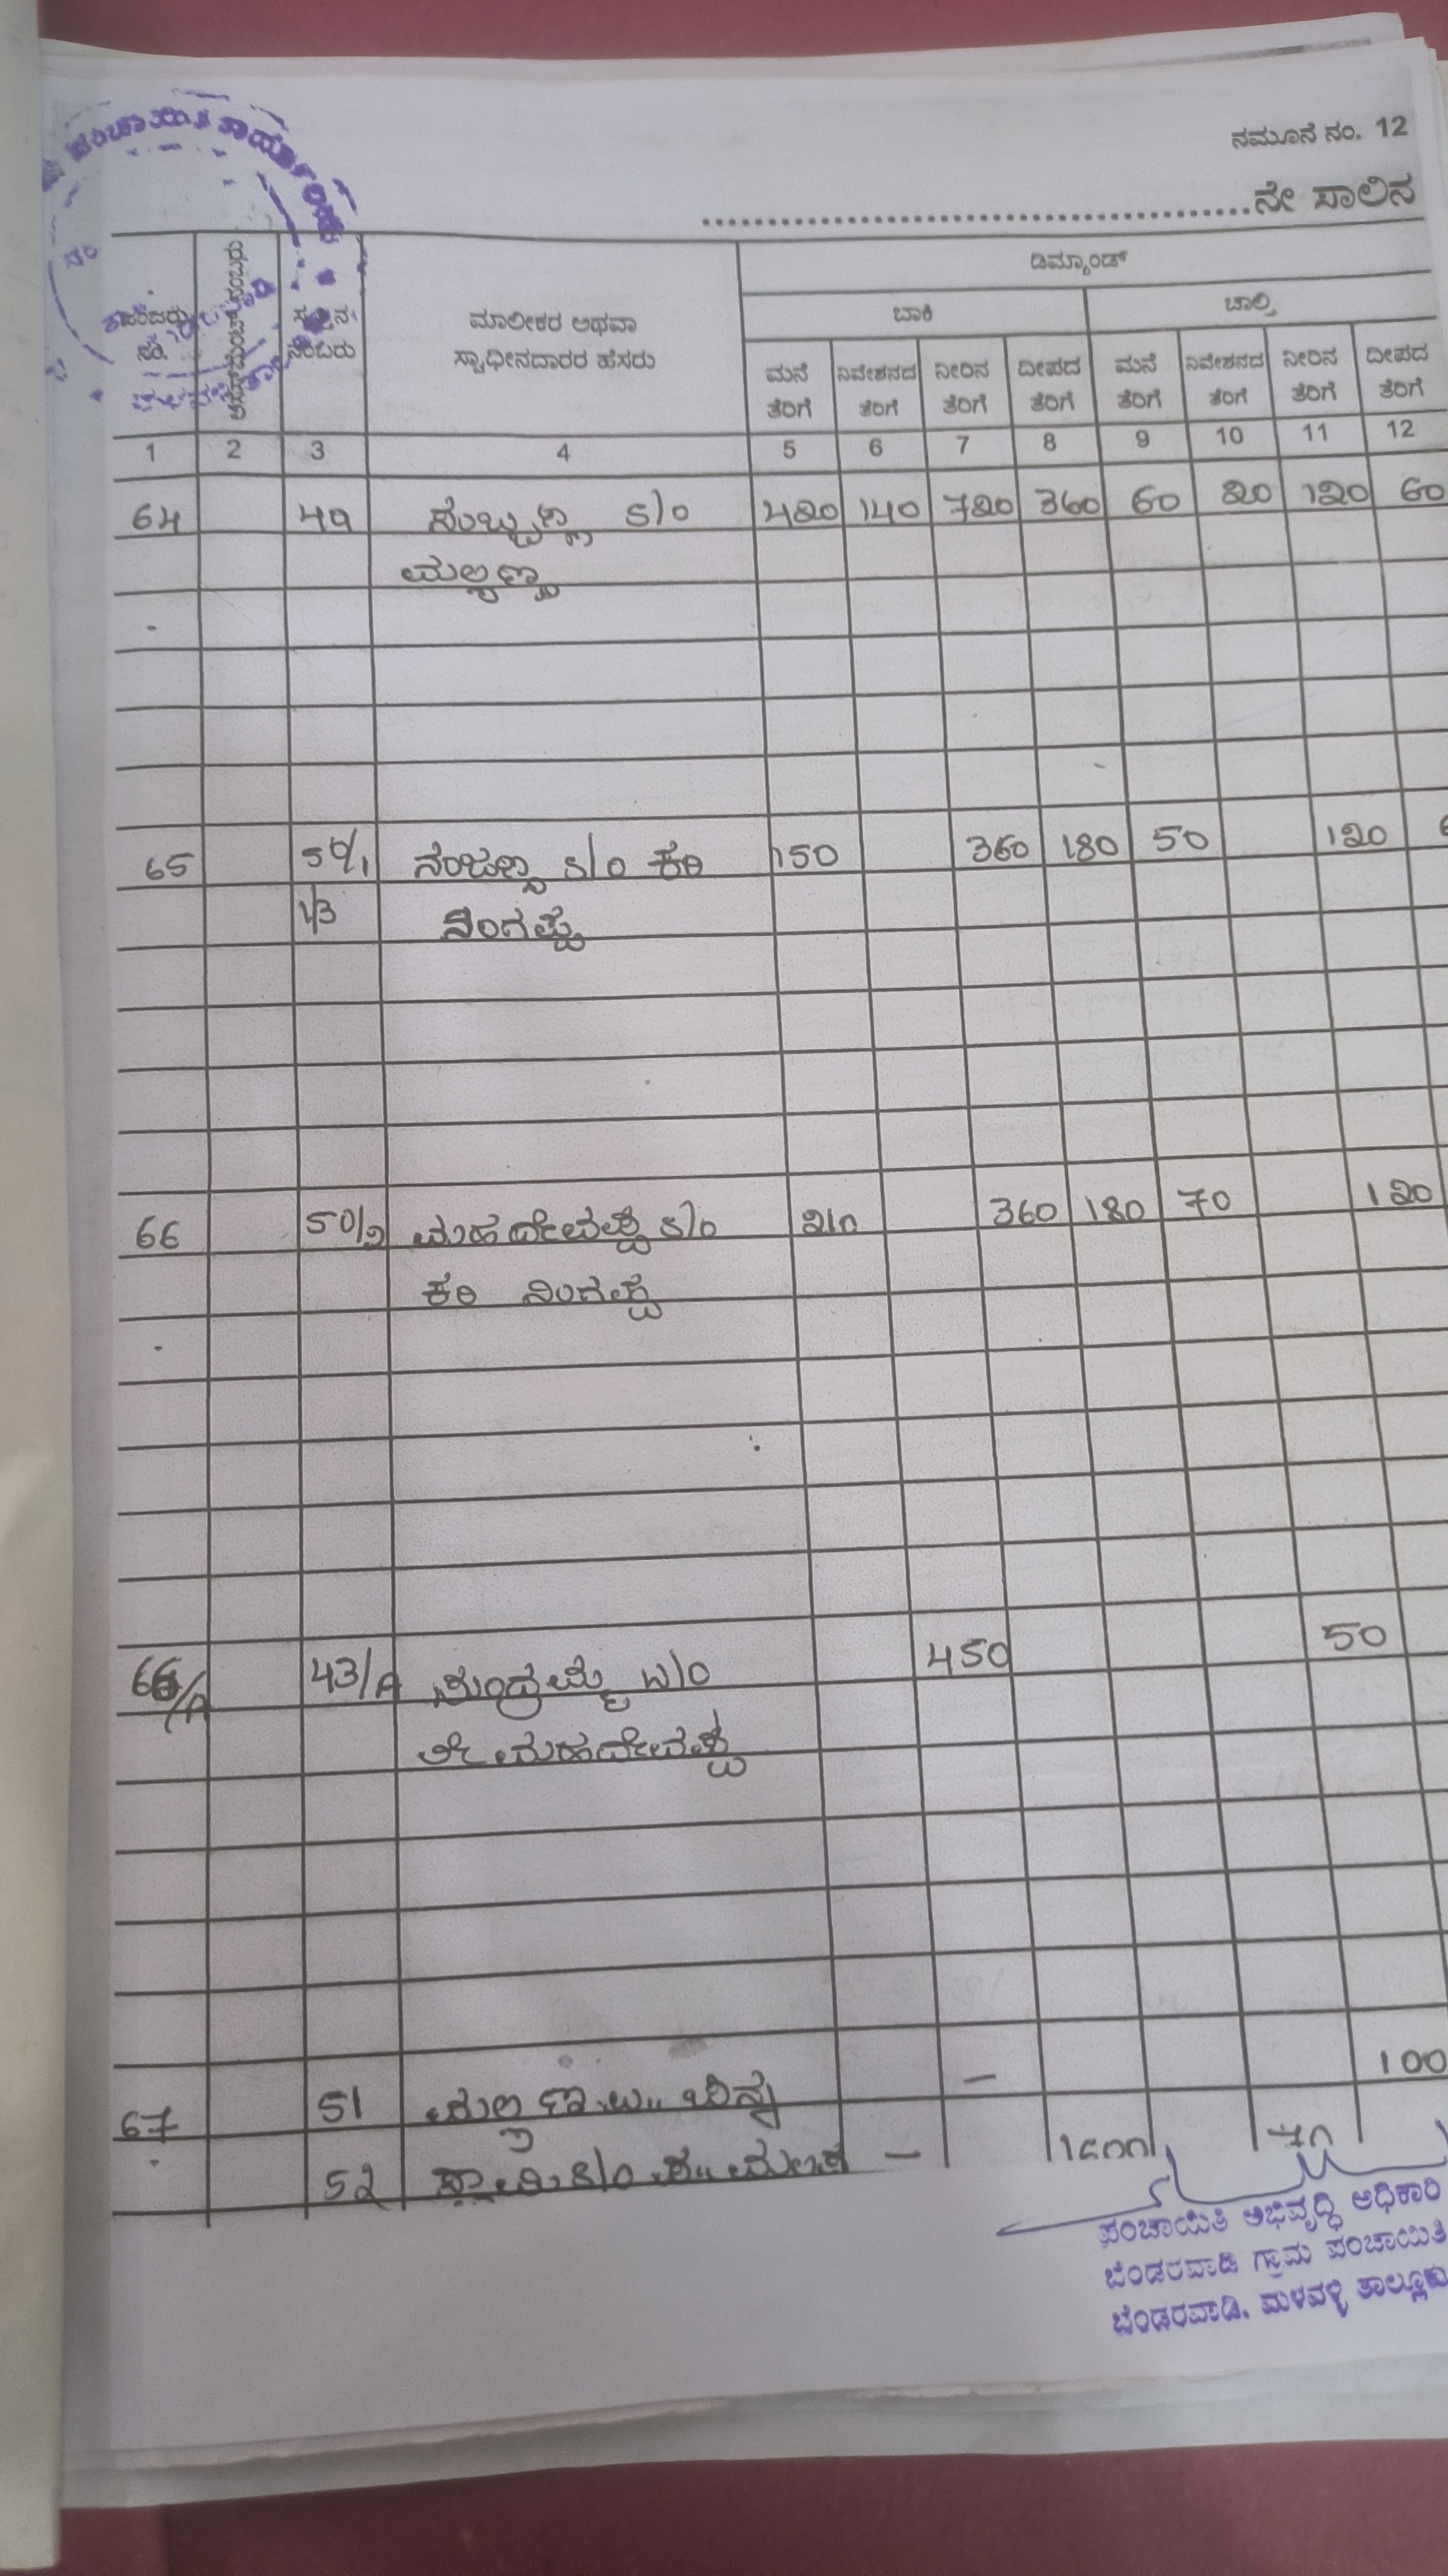 ಪಂಚಾಯಿತಿ ಕಾರ್ಯಾಲಯ
ನಮೂನೆ ನಂ. 12
..........ನೇ ಸಾಲಿನ
ನಂ.
ಸ್ವತ್ತಿನ ನಂಬರು
ಮಾಲೀಕರ ಅಥವಾ
ಸ್ವಾಧೀನದಾರರ ಹೆಸರು
ಡಿಮ್ಯಾಂಡ್
ಬಾಕಿ ಚಾಲ್ತಿ
ಮನೆ ನಿವೇಶನದ ನೀರಿನ ದೀಪದ ಮನೆ ನಿವೇಶನದ ನೀರಿನ ದೀಪದ
ತೆರಿಗೆ ತೆರಿಗೆ ತೆರಿಗೆ ತೆರಿಗೆ ತೆರಿಗೆ ತೆರಿಗೆ ತೆರಿಗೆ ತೆರಿಗೆ
1 2 3 4 5 6 7 8 9 10 11 12
64 49 ಸುಬ್ಬಣ್ಣ S/o 420 140 720 360 60 20 120 60
ಮಲ್ಲಣ್ಣ
65 50/1 ನಂಜಣ್ಣ S/o ಕರಿ 150 360 180 50 120
1/3 ನಿಂಗಪ್ಪ
66 50/2 ಮಹದೇವಪ್ಪ S/o 210 360 180 70 120
ಕರಿ ನಿಂಗಪ್ಪ
66/A 43/A W/o 450 50
ಮಹದೇವಪ್ಪ
67 51 — 100
52 S/o —
ಪಂಚಾಯಿತಿ ಅಭಿವೃದ್ಧಿ ಅಧಿಕಾರಿ
ಬೆಂಡರವಾಡಿ ಗ್ರಾಮ ಪಂಚಾಯಿತಿ
ಬೆಂಡರವಾಡಿ, ಮಳವಳ್ಳಿ ತಾಲ್ಲೂಕು